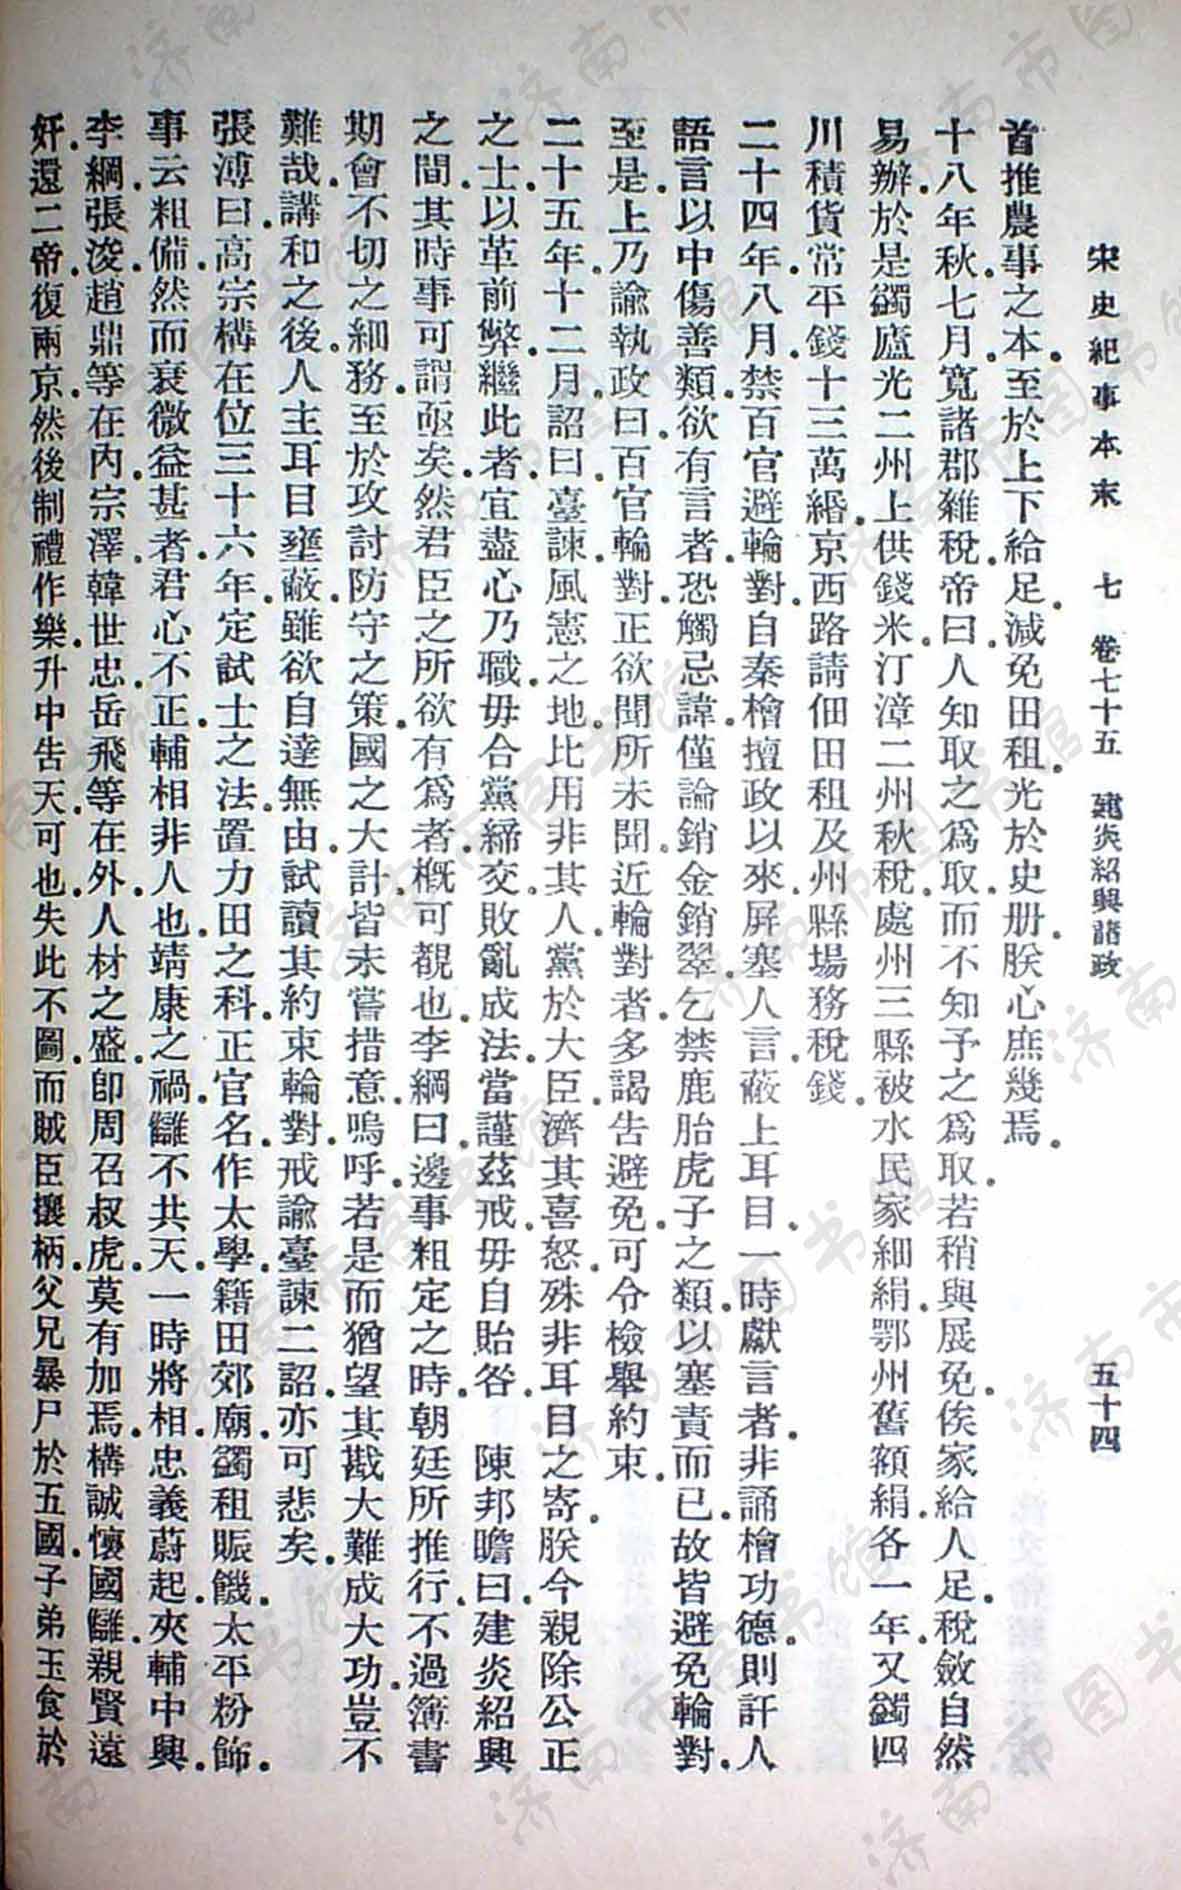 宋史紀事本末　七　卷七十五　建炎紹興諸政　五十四
首推農事之本.至於上下給足.減免田租.光於史册.朕心庶幾焉.
十八年秋七月.寬諸郡雜稅.帝曰.人知取之爲取.而不知予之爲取.若稍與展免.俟家給人足.稅斂自然
易辦.於是蠲廬光二州.上供錢米.汀漳二州秋稅.處州三縣.被水民家細絹.鄂州舊額絹.各一年.又蠲四
川積貨常平錢十三萬緡.京西路請佃田租及州縣場務稅錢.
二十四年八月.禁百官避輪對.自秦檜擅政以來.屏塞人言.蔽上耳目.一時獻言者.非誦檜功德.則訐人
語言以中傷善類.欲有言者.恐觸忌諱.僅論銷金銷翠.乞禁鹿胎虎子之類.以塞責而已.故皆避免輪對.
至是.上乃諭執政曰.百官輪對.正欲聞所未聞.近輪對者.多謁告避免.可令檢舉約束.
二十五年.十二月.詔曰.臺諫風憲之地.比用非其人.黨於大臣.濟其喜怒.殊非耳目之寄.朕今親除公正
之士.以革前弊.繼此者.宜盡心乃職.毋合黨締交.敗亂成法.當謹茲戒.毋自貽咎.　陳邦瞻曰.建炎紹興
之間.其時事可謂亟矣.然君臣之所欲有爲者.概可覩也.李綱曰.邊事粗定之時.朝廷所推行.不過簿書
期會不切之細務.至於攻討防守之策.國之大計.皆未嘗措意.嗚呼.若是而猶望其戡大難.成大功.豈不
難哉.講和之後.人主耳目壅蔽.雖欲自達無由.試讀其約束輪對.戒諭臺諫二詔.亦可悲矣.
張溥曰.高宗構在位三十六年.定試士之法.置力田之科.正官名.作太學.籍田郊廟.蠲租賑饑.太平粉飾.
事云粗備.然而衰微益甚者.君心不正.輔相非人也.靖康之禍.讎不共天.一時將相.忠義蔚起.夾輔中興.
李綱.張浚.趙鼎等在內.宗澤.韓世忠.岳飛等在外.人材之盛.卽周召叔虎.莫有加焉.構誠懷國讎.親賢遠
奸.還二帝.復兩京.然後制禮作樂.升中告天.可也.失此不圖.而賊臣攘柄.父兄暴尸於五國.子弟玉食於